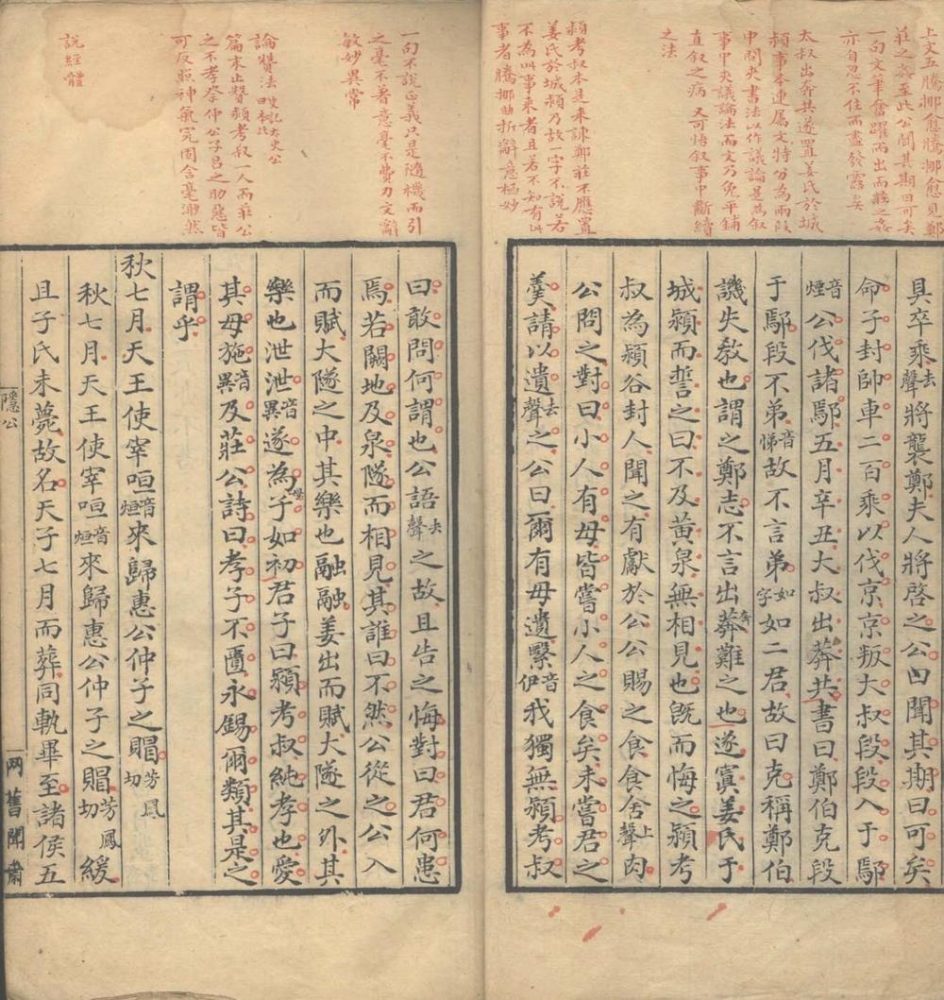 上文五騰挪愈騰挪愈見鄭
莊之姦至此公聞其期曰可矣
一句文筆奮躍而出而莊之姦
亦自忍不住而盡發露矣
太叔出奔共遂置姜氏於城
潁事本連屬文特分為兩段
中間夾書法以作議論是為叙
事中夾議論法而文乃免平鋪
直叙之病 又可悟叙事中斷續
之法
潁考叔本是來諫鄭莊不應置
姜氏於城潁乃故一字不說若
不為此事來者且若不知有此
事者騰挪曲折辭意極妙
具卒乘去聲將襲鄭夫人將啓之公聞其期曰可矣
命子封帥車二百乘以伐京京叛大叔段段入于鄢
音煙公伐諸鄢五月辛丑大叔出奔共書曰鄭伯克段
于鄢段不弟音悌故不言弟如字如二君故曰克稱鄭伯
譏失教也謂之鄭志不言出奔難之也遂寘姜氏于
城潁而誓之曰不及黃泉無相見也既而悔之潁考
叔為潁谷封人聞之有獻於公公賜之食食舍上聲肉
公問之對曰小人有母皆嘗小人之食矣未嘗君之
羹請以遺去聲之公曰爾有母遺繄音伊我獨無潁考叔
一句不說正義只是隨機而引
之毫不著意毫不費力文辭
敏妙異常
論贊法 太史公
篇末止贊潁考叔一人而莊公
之不孝祭仲公子呂之助惡皆
可反照神氣完固含毫渺然
說經體
曰敢問何謂也公語去聲之故且告之悔對曰君何患
焉若闕地及泉隧而相見其誰曰不然公從之公入
而賦大隧之中其樂也融融姜出而賦大隧之外其
樂也泄泄音異遂為母子如初君子曰潁考叔純孝也愛
其母施音異及莊公詩曰孝子不匱永錫爾類其是之
謂乎
秋七月天王使宰咺音烜來歸惠公仲子之賵芳鳳切
秋七月天王使宰咺音烜來歸惠公仲子之賵芳鳳切緩
且子氏未薨故名天子七月而葬同軌畢至諸侯五
隱公
网舊聞肅